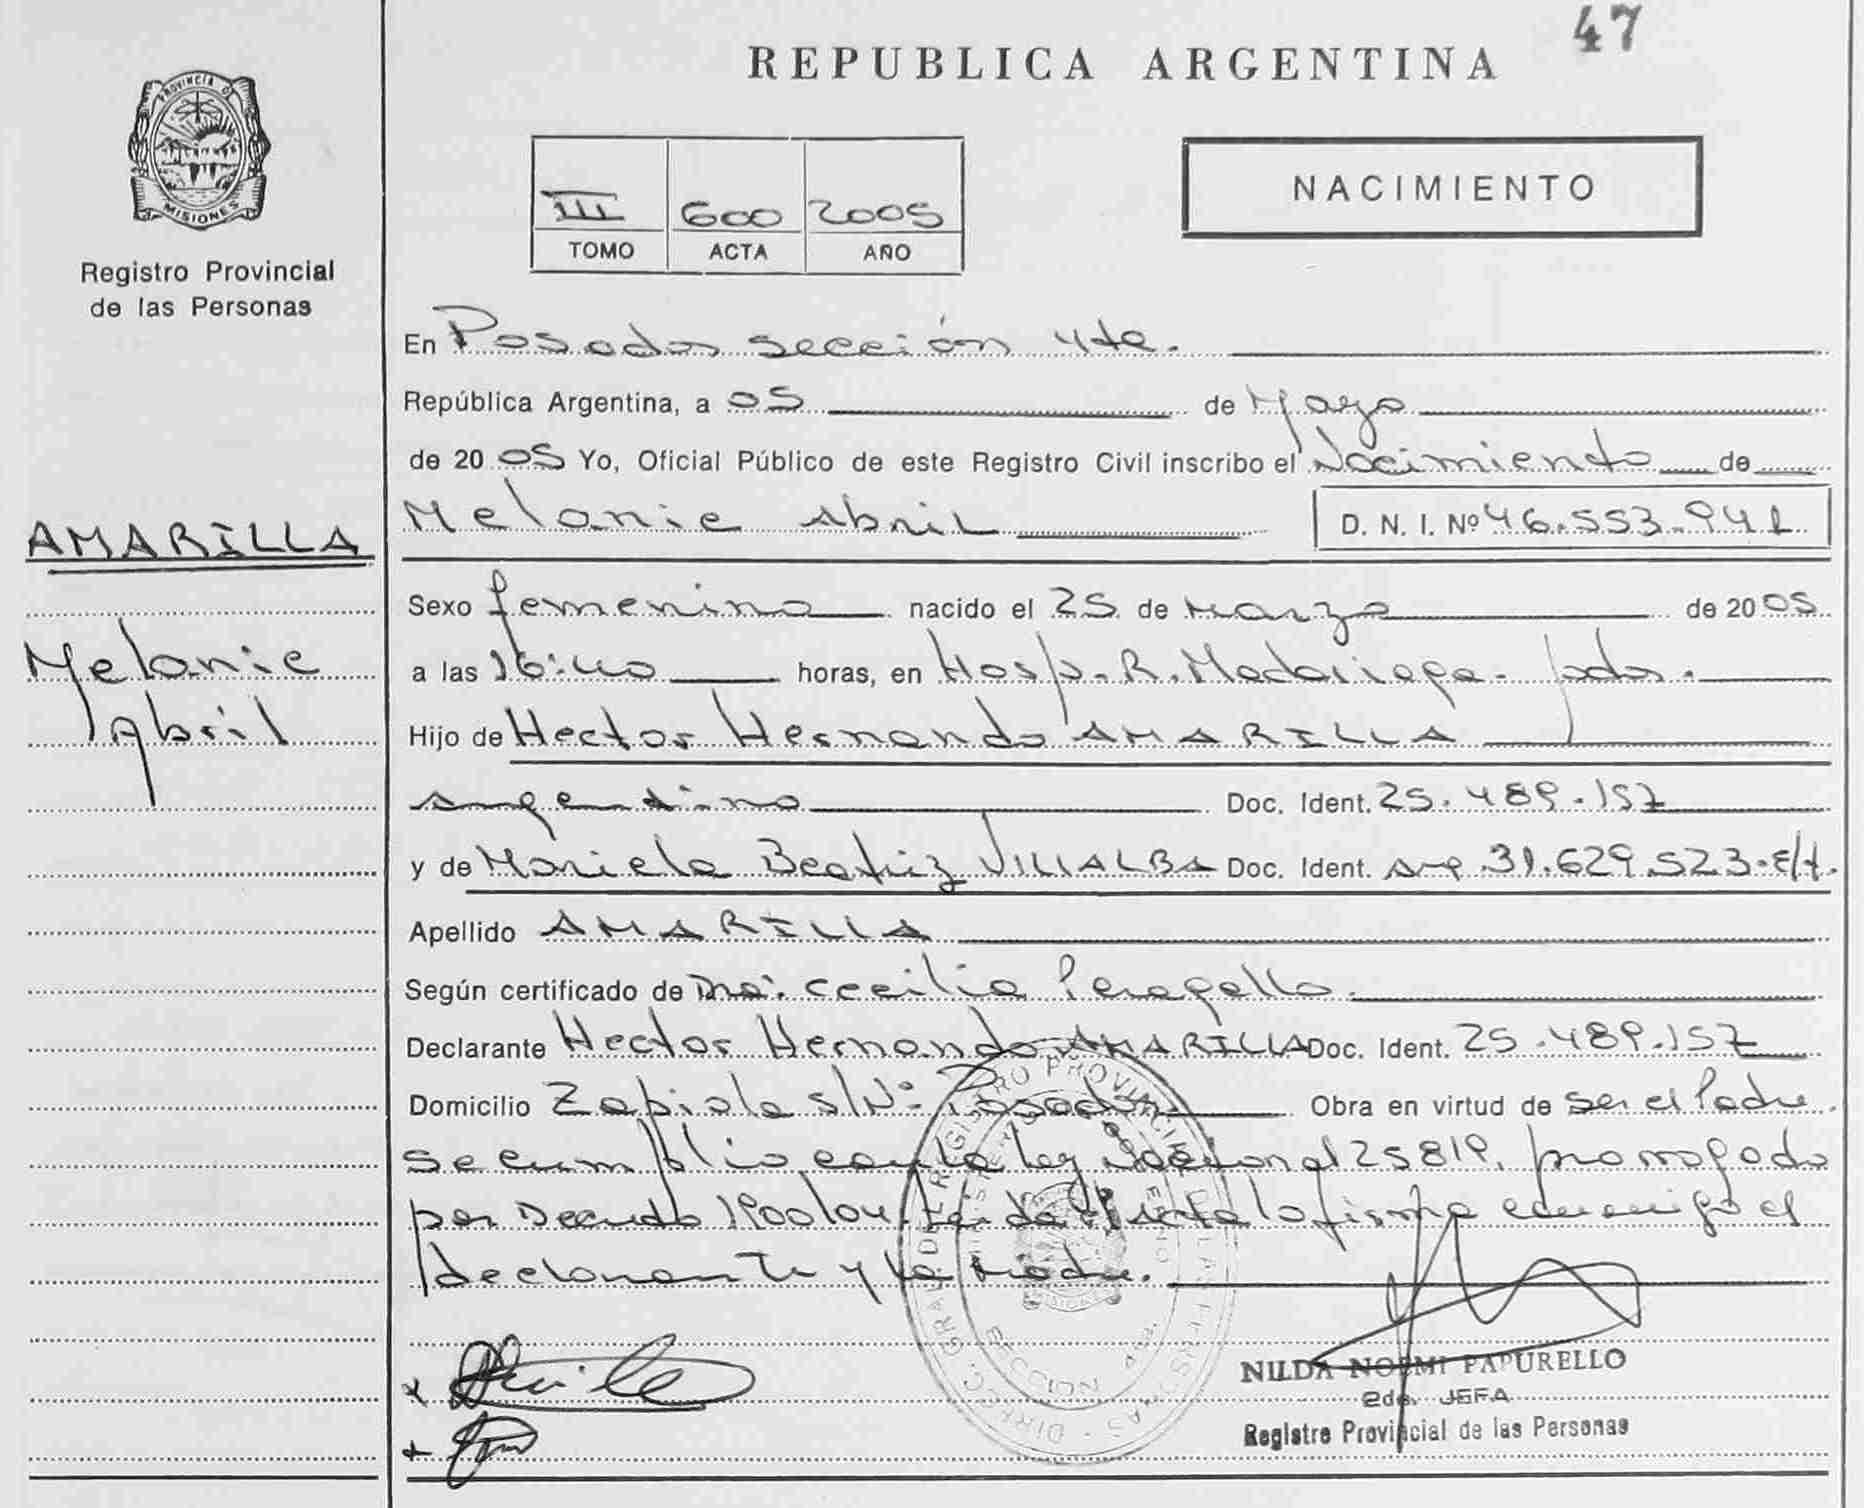 47
REPUBLICA ARGENTINA
PROVINCIA DE
MISIONES
Registro Provincial
de las Personas
III 600 2005
TOMO ACTA AÑO
NACIMIENTO
En Posadas sección 4ta.
República Argentina, a 05 de Mayo
de 2005 Yo, Oficial Público de este Registro Civil inscribo el Nacimiento de
AMARILLA
Melanie Abril D. N. I. Nº 46.553.941
Sexo femenino nacido el 25 de Marzo de 2005
Melanie
a las 16:40 horas, en Hosp. R. Madariaga - Pdas.
Abril
Hijo de Hector Hernando AMARILLA
argentino Doc. Ident. 25.489.157
y de Mariela Beatriz VILLALBA Doc. Ident. arg. 31.629.523-E/t.
Apellido AMARILLA
Según certificado de Dra: Cecilia Peragallo.
Declarante Hector Hernando AMARILLA Doc. Ident. 25.489.157
Domicilio Zapiola s/Nº: Posadas. Obra en virtud de ser el Padre.
se cumplio con la ley Nacional 25819, prorrogado
por Decreto 1900/04 leida el acta la firma conmigo el
declarante y la Madre.
NILDA NOEMI PAPURELLO
2da. JEFA
Registro Provincial de las Personas